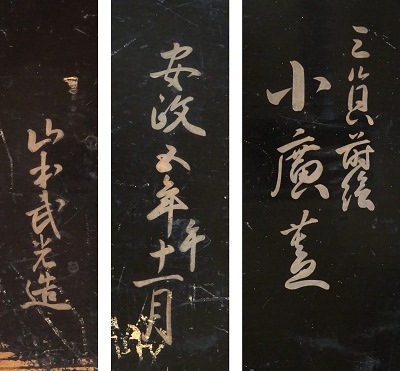 三蒔絵
小廣蓋
安政五年午十一月
山本武光造